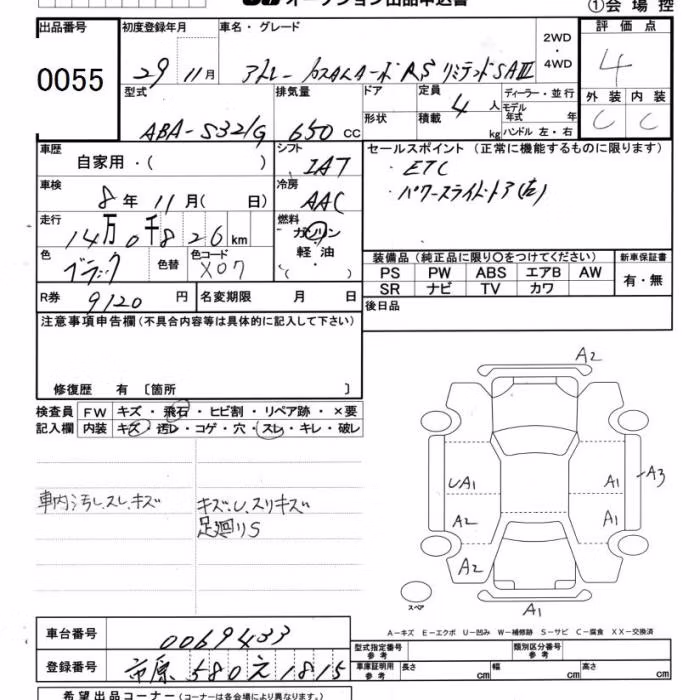 オークション出品申込書
①会場控
出品番号 初度登録年月 車名・グレード 2WD・4WD 評価点
0055 29 11月 アトレー カスタムターボRSリミテッドSAⅢ 4
型式 排気量 ドア 定員 4人 ディーラー・並行 外装 内装
モデル年式 年
ABA-S321G 650cc 形状 積載 kg ハンドル 左・右 C C
車歴 自家用・( ) シフト IAT セールスポイント(正常に機能するものに限ります)
・ETC
車検 8年11月(日) 冷房 AAC ・パワースライドドア(右)
走行 14万0千826km 燃料 ガソリン 軽油 ( )
色 ブラック 色替 色コード X07
装備品(純正品に限り〇をつけてください) 新車保証書
PS PW ABS エアB AW 有・無
SR ナビ TV カワ
R券 9120円 名変期限 月 日 後日品
注意事項申告欄(不具合内容等は具体的に記入して下さい)
修復歴 有〔箇所 〕
検査員 FW キズ・飛石・ヒビ割・リペア跡・×要
記入欄 内装 キズ・汚レ・コゲ・穴・スレ・キレ・破レ
車内汚し、スレ、キズ キズ、U、スリキズ
足廻りS
A2
UA1 A1 A3
A2 A1
A2
スペア A1
A-キズ E-エクボ U-凹み W-補修跡 S-サビ C-腐食 XX-交換済
車台番号 0069433
型式指定番号 参考 類別区分番号 参考
登録番号 市原 580 え 1815
車庫証明用 参考 長さ cm 幅 cm 高さ cm
希望出品コーナー(コーナーは各会場により異なります。)